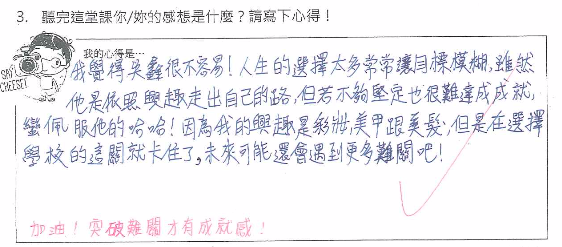 3. 聽完這堂課你/妳的感想是什麼？請寫下心得！
我的心得是…
SAY CHEESE!
我覺得吳鑫很不容易！人生的選擇太多常常讓目標模糊，雖然
他是依照興趣走出自己的路，但若不夠堅定也很難達成成就，
蠻佩服他的哈哈！因為我的興趣是彩妝，美甲跟美髮，但是在選擇
學校的這關就卡住了，未來可能還會遇到更多難關吧！
加油！突破難關才有成就感！